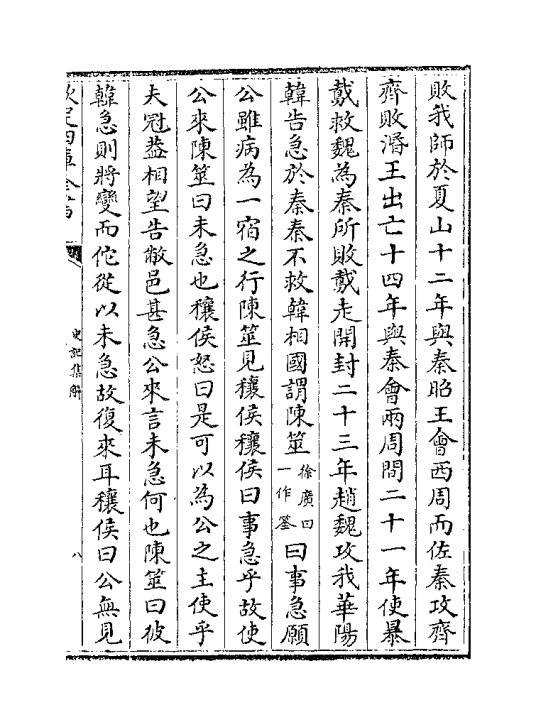 敗我師於夏山十二年與秦昭王會西周而佐秦攻齊
齊敗湣王出亡十四年與秦會兩周間二十一年使暴
戴救魏為秦所敗戴走開封二十三年趙魏攻我華陽
韓告急於秦秦不救韓相國謂陳筮徐廣曰一作筌曰事急願
公雖病為一宿之行陳筮見穰侯穰侯曰事急乎故使
公來陳筮曰未急也穰侯怒曰是可以為公之主使乎
夫冠蓋相望告敝邑甚急公來言未急何也陳筮曰彼
韓急則將變而佗從以未急故復來耳穰侯曰公無見
欽定四庫全書
史記集解
八